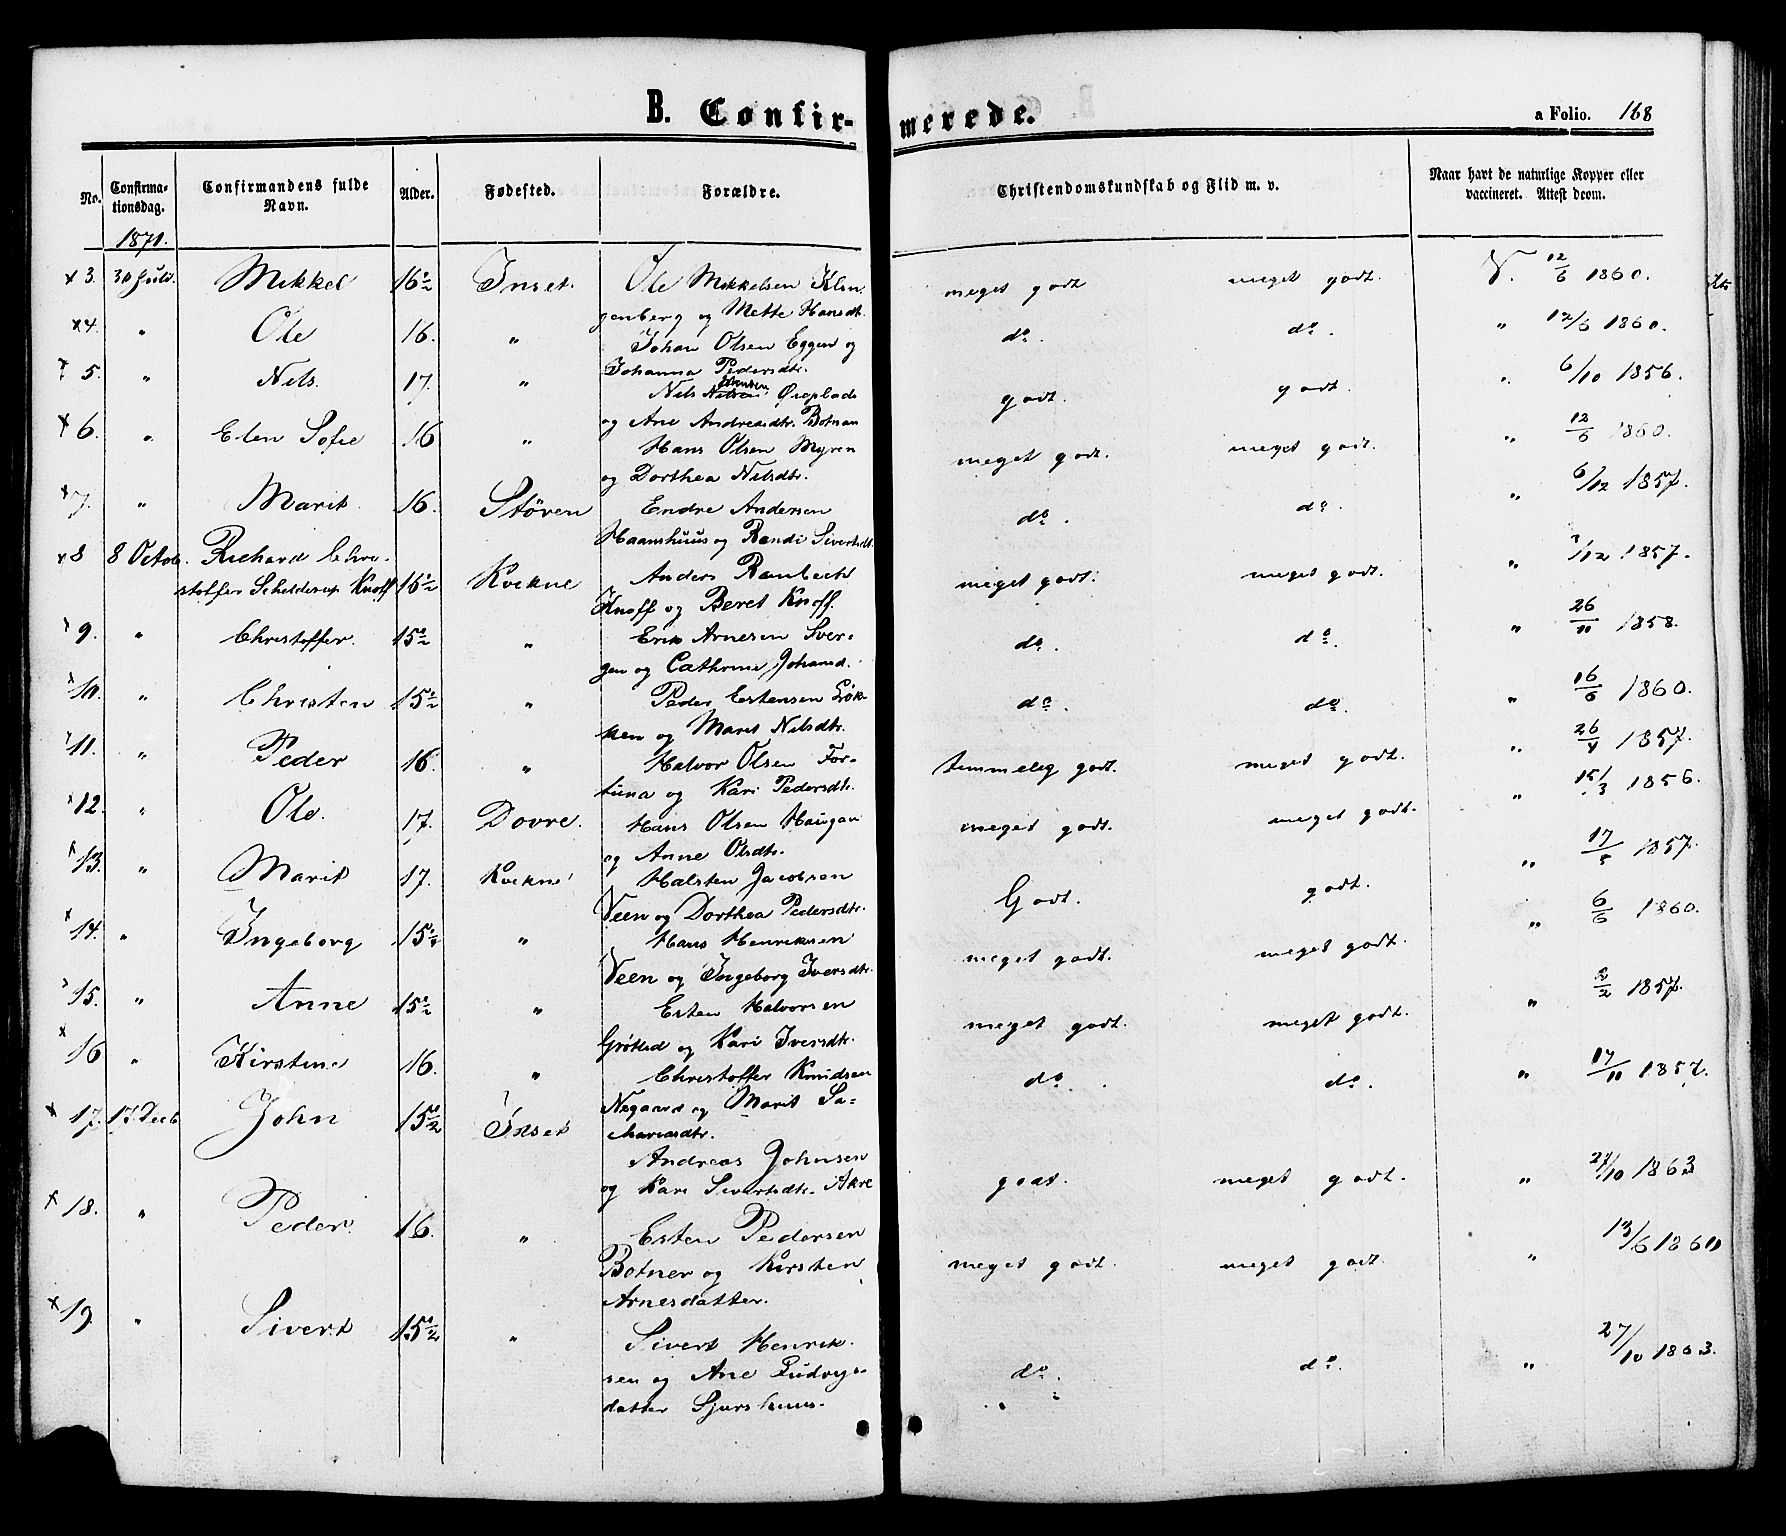 B. Confir-
merede.
a Folio. 168
No. Confirma-tionsdag. Confirmandens fulde Navn. Alder. Fødested. Forældre. Christendomskundskab og Flid m. v. Naar havt de naturlige Kopper eller vaccineret. Attest derom.
1871.
x 3. 30 Juli. Mikkel 16 1/2 Inset. Ole Mikkelsen Klin- meget godt meget godt. V. 12/6 1860.
genberg og Mette Hansdt.
x 4. " Ole 16. " Johan Olsen Eggen og do. do. " 12/6 1860.
Johanna Pedersdtr.
x 5. " Nels. 17. " Nels Øieplads godt. godt. " 6/10 1856.
og Ane Andreasdtr. Botnan
x 6. " Elen Sofie 16 " Hans Olsen Myren meget godt. meget godt. " 12/6 1860.
og Dorthea Nelsdtr.
x 7. " Marit 16. Stören Endre Andersen do. do. " 6/12 1857.
Haanshuus og Randi Sivertsdt.
x 8 8 Octob. Richard Chri- Anders Rambech meget godt. meget godt. " /12 1857.
stoffer Schelderup Knoff 16 1/2 Kvekne
Knoff og Beret Knoff.
x 9. " Christoffer. 15 1/2 " Erik Arnesen Sver- do. do. " 26/11 1858.
gen og Cathrine Johansd.
x 10. " Christen 15 1/2 " Peder Estensen Løk- do. do. " 16/6 1860.
ken og Marit Nilsdtr.
11. " Peder 16. " Halvor Olsen For- temmelig godt. meget godt. " 26/4 1857.
tuna og Kari Pedersdtr.
x 12. " Ole. 17. Dovre. Hans Olsen Haugan meget godt. meget godt. " 15/3 1856.
og Anne Olsdtr.
x 13. " Marit 17. Kvekne Halsten Jacobsen Godt. godt. " 17/5 1857.
Veen og Dorthea Pedersdtr.
x 14. " Ingeborg 15 1/2 " Hans Henriksen meget godt. meget godt. " 6/6 1860.
Veen og Ingeborg Iversdtr.
15. " Anne 15 1/2 " Esten Halvorsen meget godt. meget godt. " 2/2 1857.
Grøtled og Kari Iversdtr.
x 16 " Kirstine 16. " Christoffer Knudsen do. do. " 17/11 1857.
Negaard og Marit Za-
chariasdtr.
x 17. 17. Decb John 15 1/2 Inset Andreas Johnsen godt. meget godt. " 27/10 1863
og Kari Sivertsdtr. Akre
x 18. " Peder 16. " Esten Pedersen meget godt. meget godt. " 13/6 1860
Botner og Kirsten
Arnesdatter.
x 19 " Sivert 15 1/2 " Sivert Henrik- do. do. " 27/10 1863.
sen og Ane Ludvigs-
datter Sjurshuus.